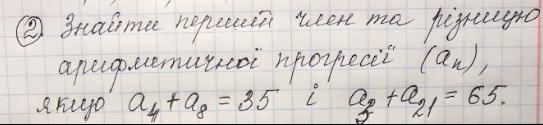 ② Знайти перший член та різницю
арифметичної прогресії (aₙ),
якщо a₄ + a₈ = 35 і a₃ + a₂₁ = 65.